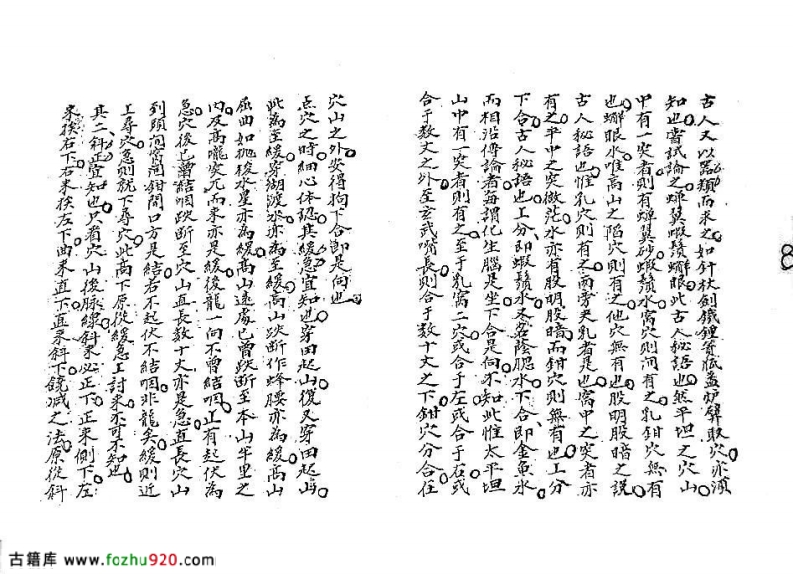 古人又以器類而求之如針杖劍鐵鍾覓瓶盖炉鼾取穴亦須
知也嘗試論之蟬翼蝦鬚蠏眼此古人秘語也然平坦之穴山
中有一突者則有蟬翼砂蝦鬚水窩穴則间有之乳鉗穴無有
也蠏眼水唯高山之陷穴則有之他穴無有也股明股暗之説
古人秘語也惟乳穴則有之两旁夹乳者是也窩中之突者亦
有之平中之突微茫水亦有股明股暗而鉗穴則無有也上分
下合古人秘語也上分即蝦鬚水又名蔭腮水下合即金魚水
而相沿傳論者每謂化生腦是坐下合是向不知此惟太平坦
山中有一突者則有之至于乳窩二穴或合于左或合于右或
合于数丈之外至玄武嘴長則合于数十丈之下鉗穴分合在
穴山之外安得拘下合即是向也
点穴之時細心体認其緩急宜知也穿田起山復又穿田起山
此為至緩穿湖渡水亦為至緩高山跌断作蜂腰亦為緩高山
屈曲如抛後水星亦為緩高山遠處已曾跌断至本山半里之
内及高嚨突兀而来亦是緩後龍一向不曾結咽正有起伏為
急穴後已曾結咽跌断至穴山直長数十丈亦是急直長穴山
到頭间窩间鉗開口方是結若不起伏不結咽非龍矣緩則近
上尋穴急則就下尋穴此高下原從緩急上討来不可不知也
其二斜正宜知也只看穴山後脉線斜来必正下正来側下左
来挨右下右来挨左下曲来直下直来斜下饒减之法原從斜
8
古籍库 www.fozhu920.com